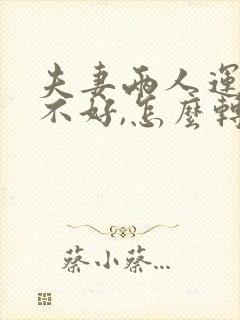 夫妻兩人運
不好,怎麼轉
蔡小蔡...